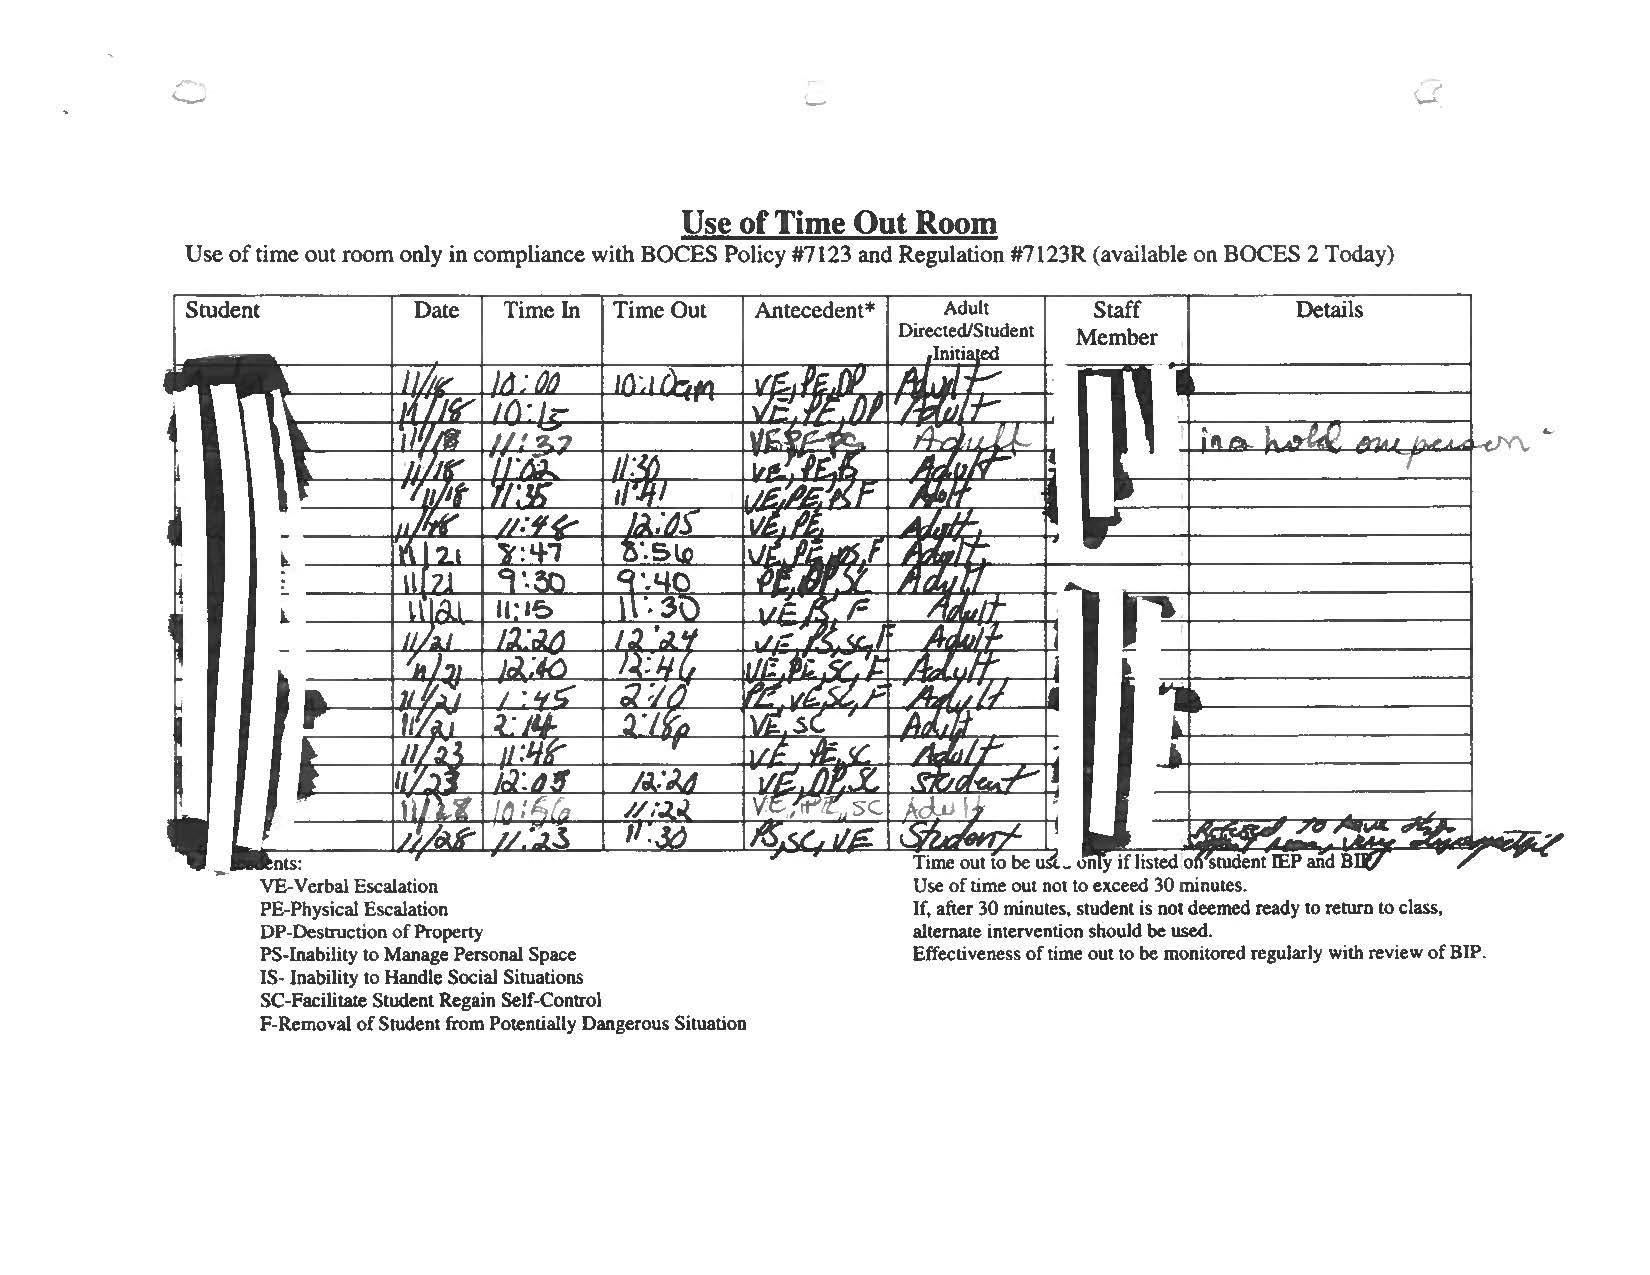 Use of Time Out Room
Use of time out room only in compliance with BOCES Policy #7123 and Regulation #7123R (available on BOCES 2 Today)
Student Date Time In Time Out Antecedent* Adult Directed/Student Initiated Staff Member Details
11/18 10:00 10:10am VE, PE, DP Adult
11/18 10:15 VE, PE, DP Adult
11/18 11:37 VE Adult in a hold one person
11/18 11:02 11:30 VE, PE, Adult
11/18 11:35 11:41 VE, PE, PS F Adult
11/18 11:48 12:05 VE, PE, Adult
11/21 8:47 8:56 VE, PE, PS, F Adult
11/21 9:30 9:40 PE, DP, SC Adult
11/21 11:15 11:30 VE, PS, F Adult
11/21 12:20 12:24 VE, PS, SC, F Adult
11/21 12:40 12:46 VE, PE, SC, F Adult
11/21 1:45 2:10 PE, VE, SC, F Adult
11/21 2:14 2:18p VE, SC Adult
11/23 11:48 VE, PE, SC Adult
11/23 12:05 12:20 VE, DP, SC Student
11/28 10:56 11:22 VE, PE, SC Adult
11/28 11:23 11:30 PS, SC, VE Student Refused to have
room, very
nts:
VE-Verbal Escalation
PE-Physical Escalation
DP-Destruction of Property
PS-Inability to Manage Personal Space
IS- Inability to Handle Social Situations
SC-Facilitate Student Regain Self-Control
F-Removal of Student from Potentially Dangerous Situation
Time out to be us only if listed on student IEP and BIP
Use of time out not to exceed 30 minutes.
If, after 30 minutes, student is not deemed ready to return to class,
alternate intervention should be used.
Effectiveness of time out to be monitored regularly with review of BIP.